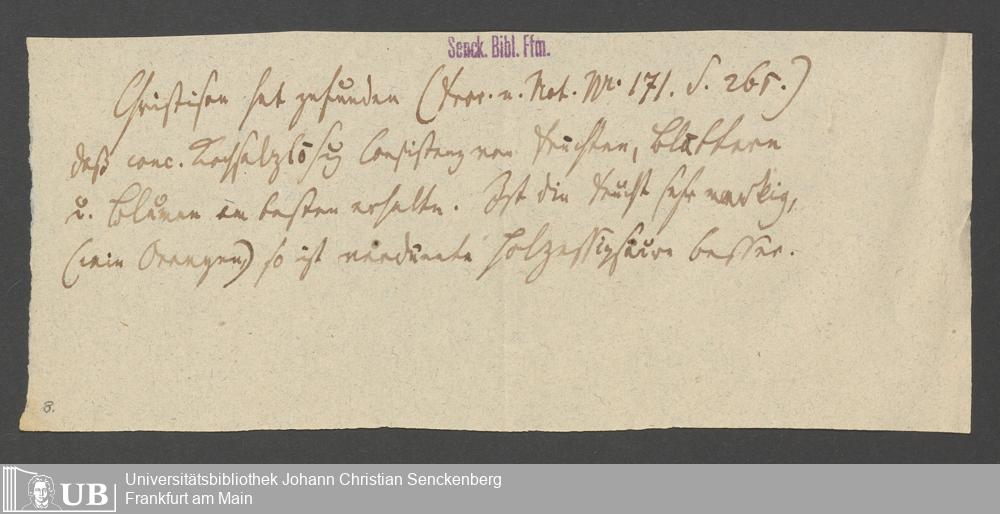 Senck. Bibl. Ffm.
Christison hat gefunden (Fror. n. Not. No. 171. S. 265.)
daß conc. Kochsalzlösug Consistenz von Früchten, Blättern
u. Blumen am besten erhalte. Ist die Frucht sehr markig,
(wie Orangen,) so ist verdünnte Holzessigsäure besser.
8.
UB
Universitätsbibliothek Johann Christian Senckenberg
Frankfurt am Main